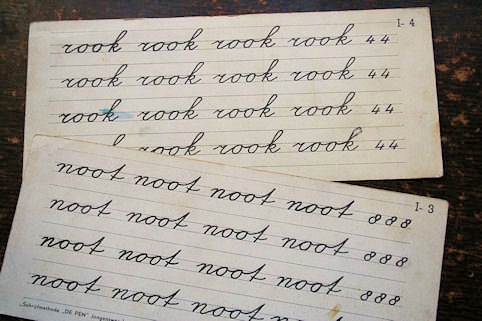 I-4
rook rook rook rook 44
rook rook rook rook 44
rook rook rook rook 44
rook rook rook 44
I-3
noot noot noot noot 888
noot noot noot noot 888
noot noot noot noot 888
noot noot noot noot
„Schrijfmethode „DE PEN"